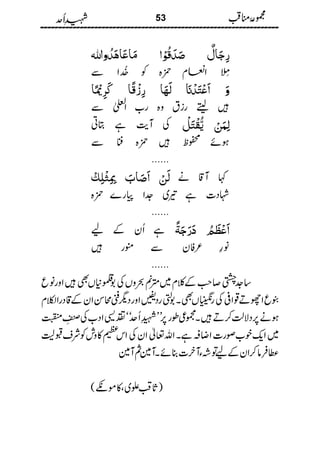 مجموعۂ مناقب 53 شہیدِ اُحد
رِجَالٌ صَدَقُوْا مَاعَاهَدُواللّٰه
مِلا انعام حمزہ کو خُدا سے
وَ اَعْتَدْنَا لَهَا رِزْقًا كَرِيْمًا
ہیں لیتے رزق وہ ربِ اُعلیٰ سے
لِمَنْ يُّقْتَلُ کی آیت ہے بتاتی
ہوئے محفوظ ہیں حمزہ فنا سے
......
لَنْ اَصَابَ بِمِثْلِكْ کہا آقا نے
شہادت ہے تیری جدا پیارے حمزہ
......
اَعْظَمُ دَرَجَةً ہے اُن کے لیے
نورِ عرفان سے منور ہیں
......
ساجد چشتی صاحب کے کلام میں مترنم بحروں کی بوقلمونیاں بھی ہیں اور نوع
بنوع اچھوتے قوافی کی نیرنگیاں بھی۔ بولتی ردیفیں اور دیگر فنی محاسن ان کے قادر الکلام
ہونے پر دلالت کرتے ہیں۔ مجموعی طور پر ’’شہیدِ اُحد‘‘ تقدیسی ادب کی صنفِ منقبت
میں ایک خوب صورت اضافہ ہے۔ اللہ تعالیٰ ان کی اس عظیم کاوش کو شرفِ قبولیت
عطا فرما کر ان کے لیے توشۂ آخرت بنائے۔ آمین ثم آمین
(ثاقب علوی، کاموںکے)